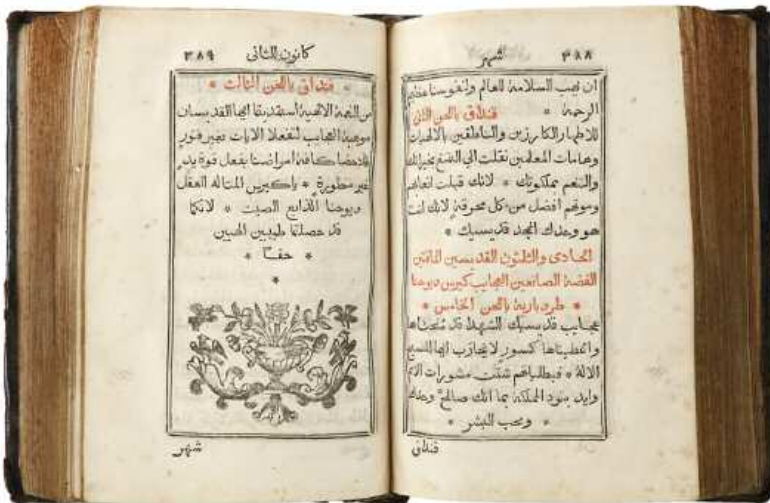 ٣٨٨ شهر
ان تهب السلامة للعالم ولنفوسنا عظيم
الرحمة * قنداق باللحن الثاني
للاطهار الكارزين والناطقين بالالهيات
وهامات المعلمين نقلت الى التمتع بخيراتك
والتنعم بملكوتك * لانك قبلت اتعابهم
وموتهم افضل من كل محرقة لانك انت
هو وحدك المجد قديسيك *
الحادى والثلثون القديسين الماقتين
الفضة الصانعين العجايب كيرس ويوحنا
* طروبارية باللحن الخامس *
عجايب قديسيك الشهدا قد منحتناها
واعطيتناها كسور لا يحارب ايها المسيح
الاله * فبطلباتهم شتت مشورات الامم
وايد بنود المملكة بما انك صالح وحدك
* ومحب البشر *
قنداق
كانون الثانى ٣٨٩
* قنداق باللحن الثالث *
من النعمة الالهية استفدتما ايها القديسان
موهبة العجايب لتفعلا الايات بغير فتور
كافة امراضنا بفعل قوة يد
غير منظورة * ياكيرس المتاله العقل
ويوحنا الذايع الصيت * لانكما
قد حصلتما طبيبين الهيين
* حقا *
*
شهر